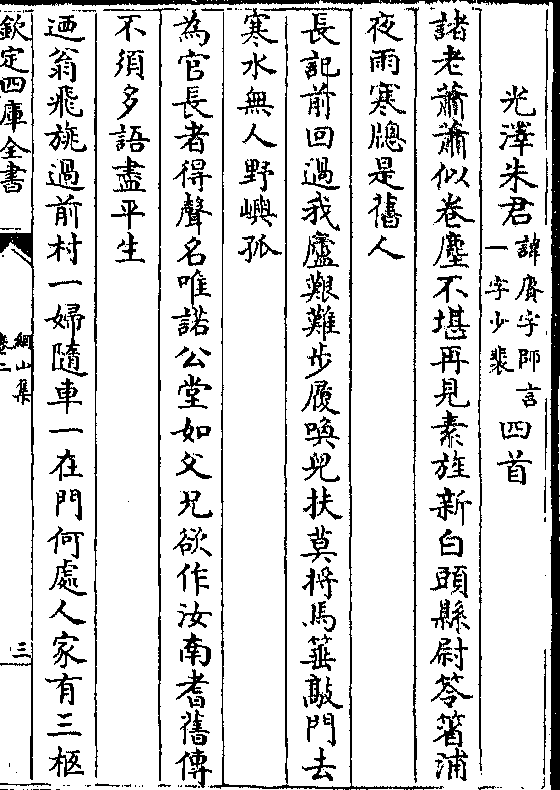 光澤朱君諱賡字師言一字少裴四首
諸老蕭蕭似卷塵不堪再見素旌新白頭縣尉笭箵浦
夜雨寒牕是舊人
長記前回過我廬艱難步履喚兒扶莫將馬箠敲門去
寒水無人野嶼孤
為官長者得聲名唯諾公堂如父兄欲作汝南耆舊傳
不須多語盡平生
迺翁飛旐過前村一婦隨車一在門何處人家有三柩
欽定四庫全書
網山集
卷二
三